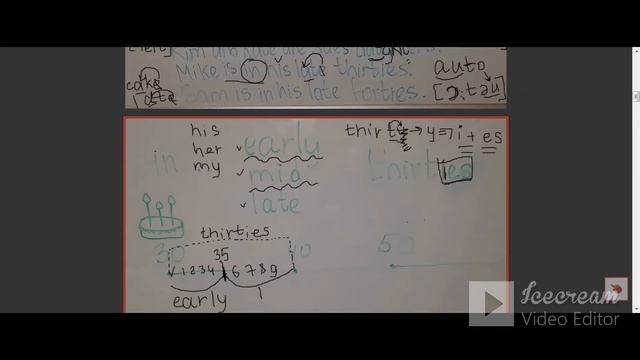 Mike is in his late thirties.
auto
cake
Sam is in his late forties.
his
her
my
in
early
mid
late
thirty → y => i + es
thirties
thirties
30
35
40
50
1 2 3 4
6 7 8 9
early
Icecream
Video Editor